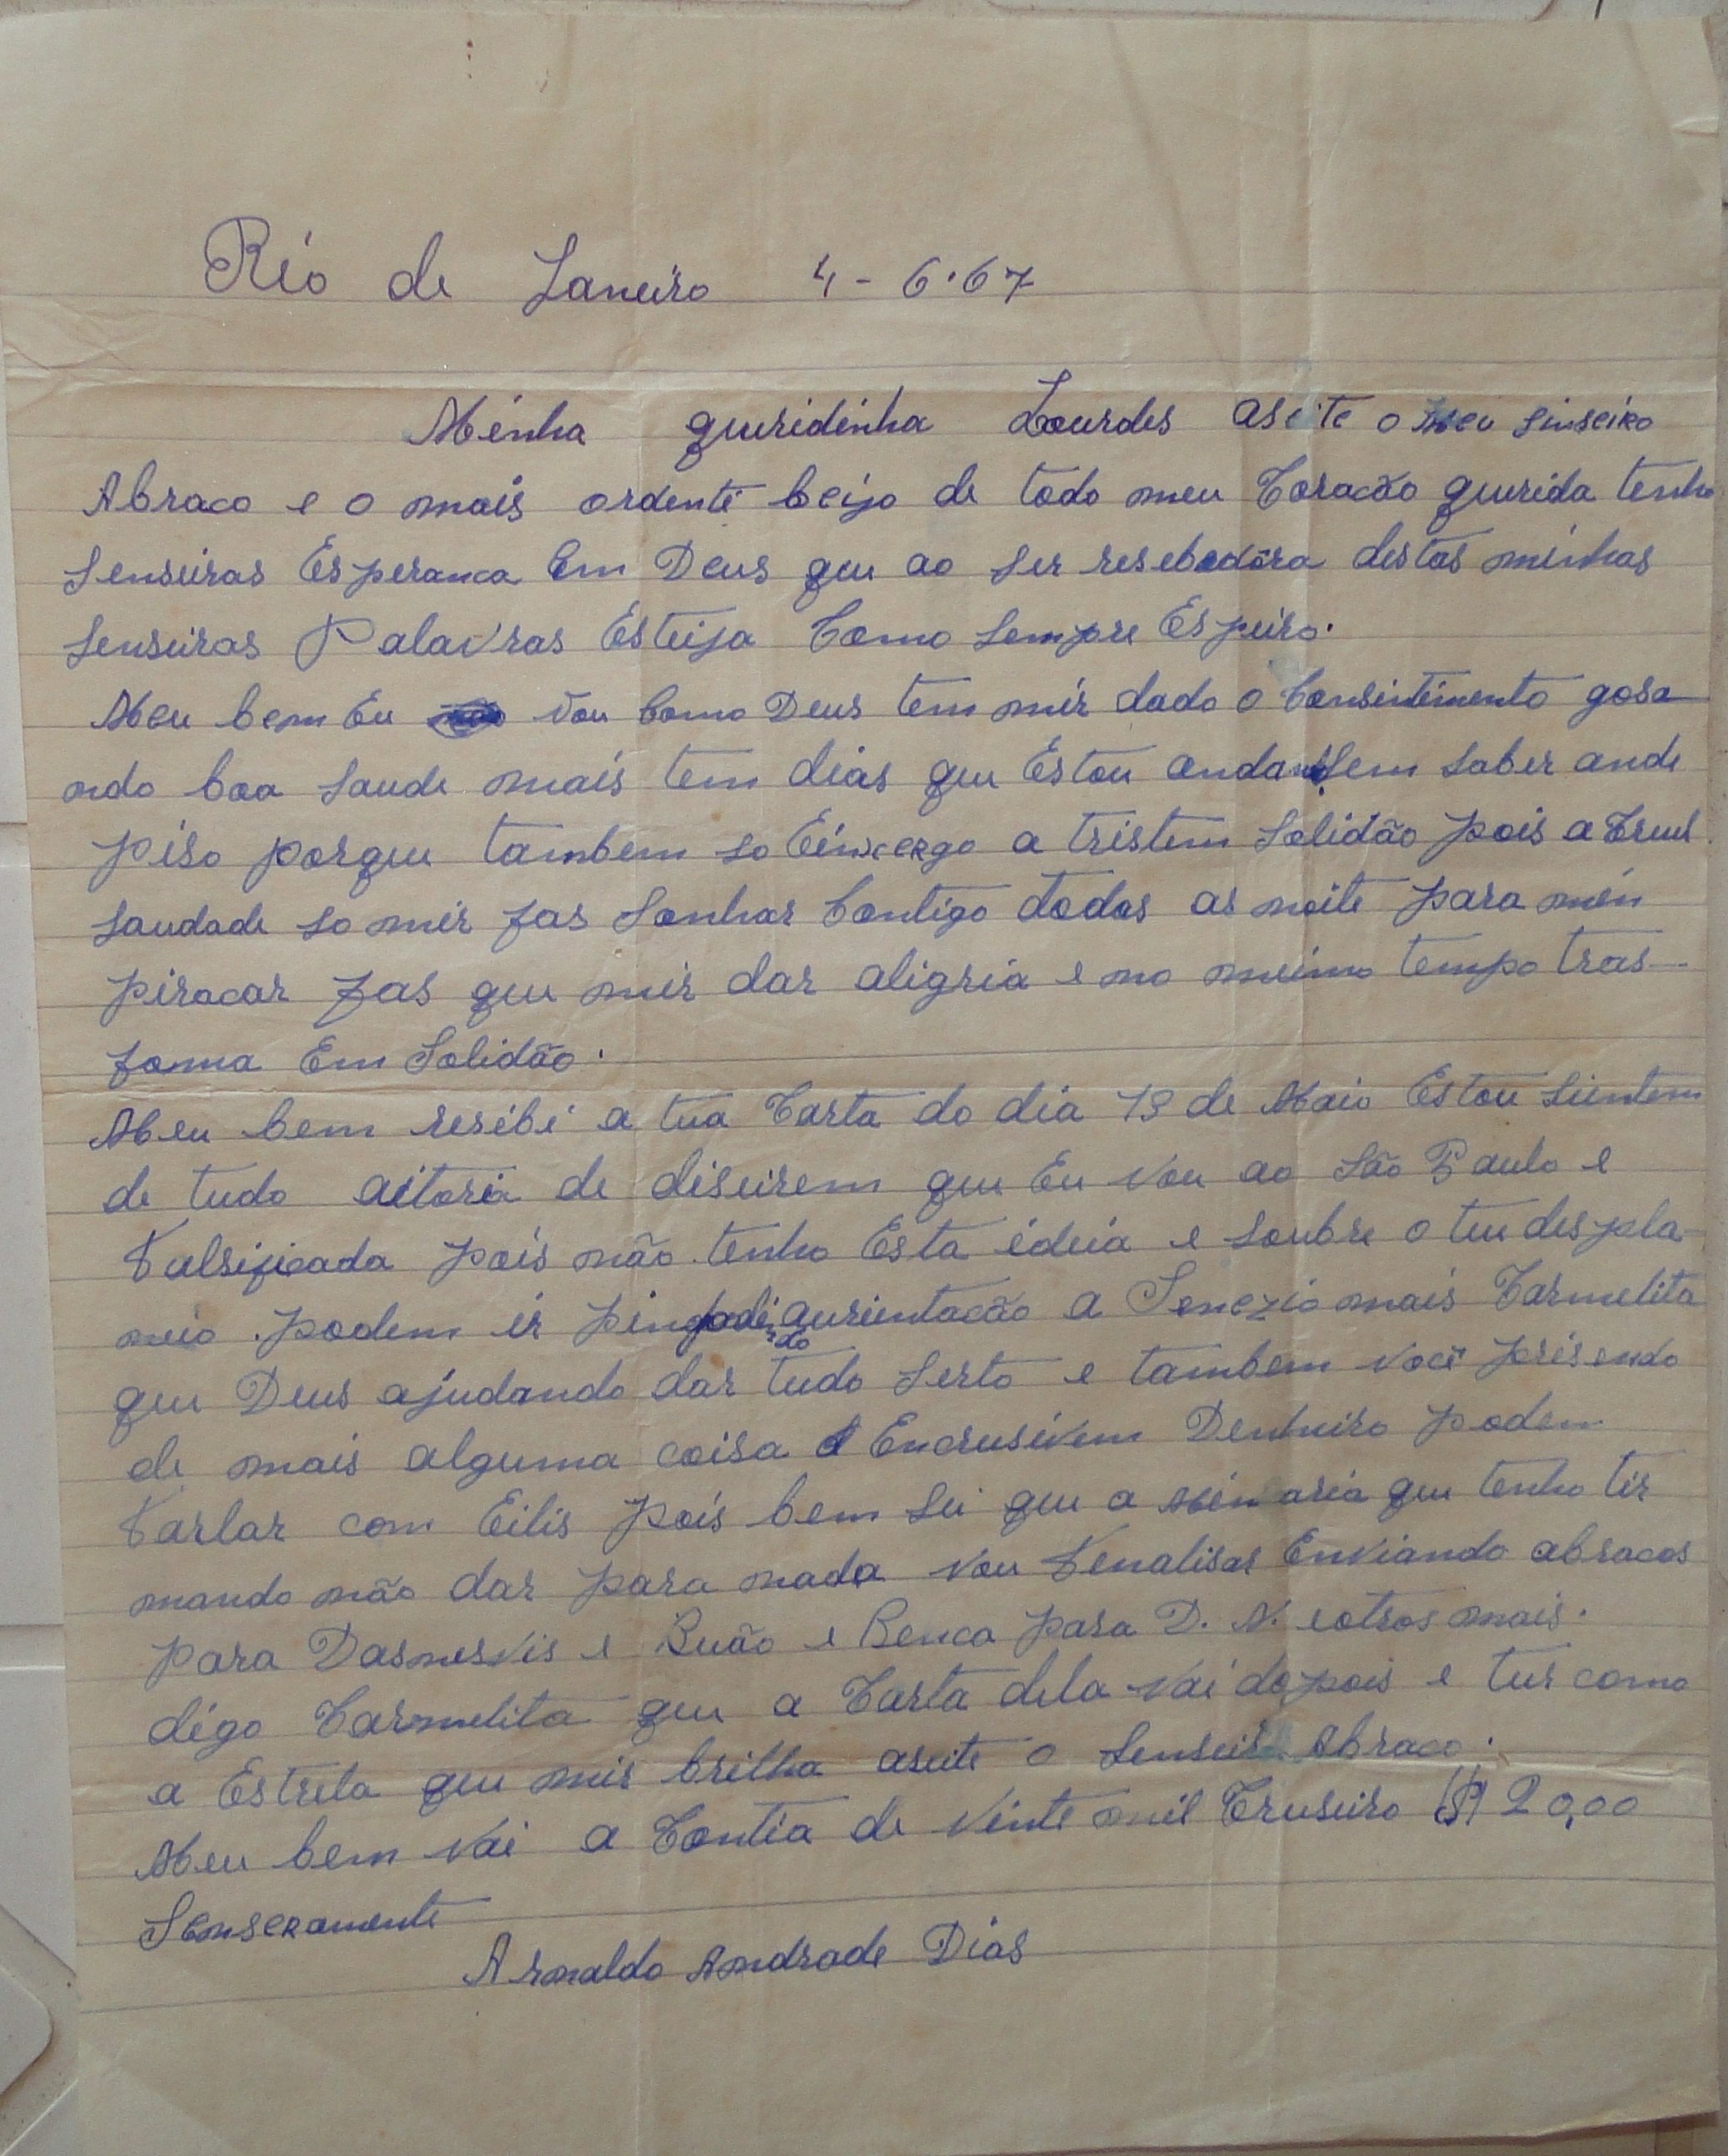 Rio de Janeiro 4-6.67
Minha queridinha Lourdes aseite o meu sinseiro
Abraco e o mais ordente beijo de todo meu Coracão querida tenho
senseiras Esperanca Em Deus que ao ser resebedôra destas minhas
senseiras Palavras Esteija Como sempre Espeiro.
Meu bem Eu vou Como Deus tem mir dado o Consintimento gosa
ndo boa saude mais tem dias que Estou anda sem saber ande
piso porque tambem so Einxergo a tristem solidão pois a Cruel
saudade so mir fas sonhar Contigo todas as noite para min
piracar fas que mir dar aligria e no meimo tempo tras-
forma Em Solidão.
Meu bem resibi a tua Carta do dia 13 de Maio Estou sientem
de tudo aitoria de diseirem que Eu vou ao São Paulo e
Falsificada pois não tenho Esta ideia e soubre o teu despla-
neio podem ir pindo aurientacão a Senezio mais Carmelita
que Deus ajudando dar tudo serto e tambem você prisendo
de mais alguma coisa Encrusivem Denheiro podem
Farlar com Eilis pois bem sei que a minaria que tenho tir
mando não dar para nada vou Fenalisar Enviando abracos
para Dasnesvis e Buão e Benca para D. N. eotros mais.
digo Carmelita que a Carta dela vai depois e tur como
a Estrela que mir brilha aseite o senseiro Abraco.
Meu bem vai a Contia de vinte mil Cruseiro ($) 20,00
Senseramente
Arnaldo Andrade Dias